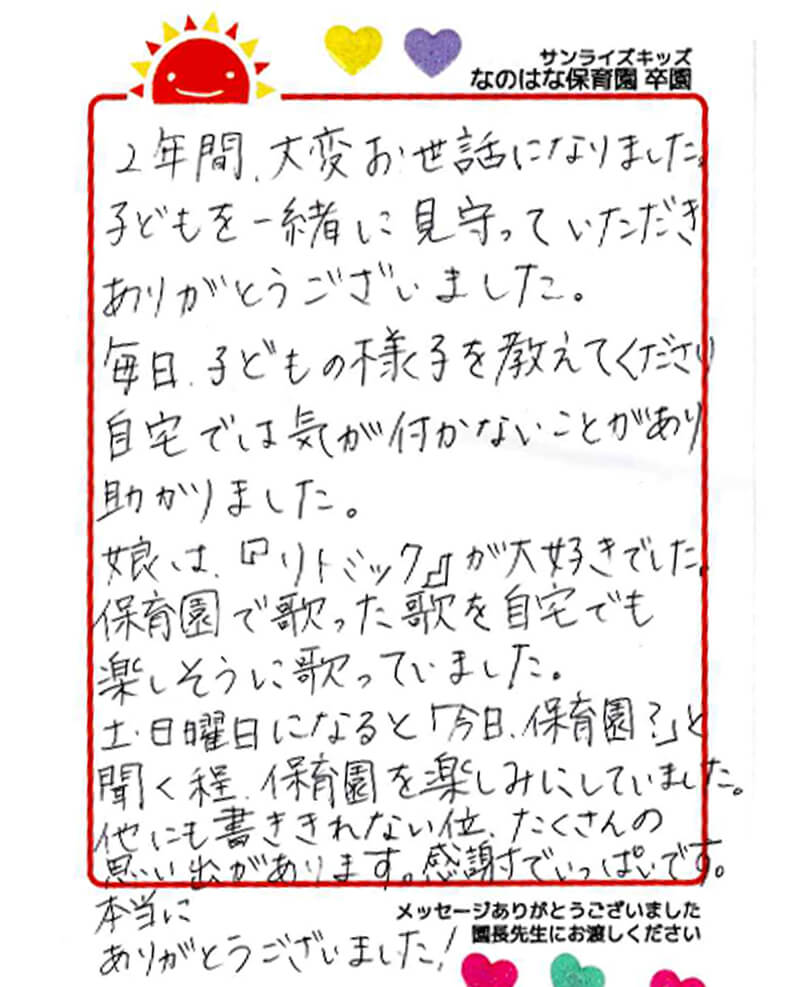 サンライズキッズ
なのはな保育園 卒園
2年間、大変お世話になりました。
子どもを一緒に見守っていただき
ありがとうございました。
毎日、子どもの様子を教えてくださり
自宅では気が付かないことがあり
助かりました。
娘は、『リトミック』が大好きでした。
保育園で歌った歌を自宅でも
楽しそうに歌っていました。
土・日曜日になると「今日、保育園?」と
聞く程、保育園を楽しみにしていました。
他にも書ききれない位、たくさんの
思い出があります。感謝でいっぱいです。
本当に
ありがとうございました!
メッセージありがとうございました
園長先生にお渡しください